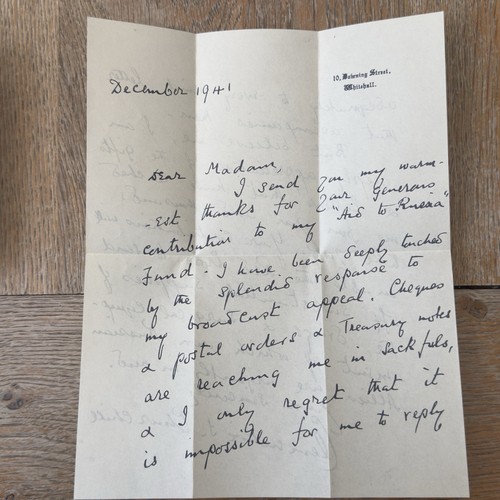 10, Downing Street,
Whitehall.
December 1941
Dear Madam,
I send you my warm-
-est thanks for your generous
contribution to my "Aid to Russia"
Fund. I have been deeply touched
by the splendid response to
my broadcast appeal. Cheques
& postal orders & Treasury notes
are reaching me in sackfuls,
& I only regret that it
is impossible for me to reply